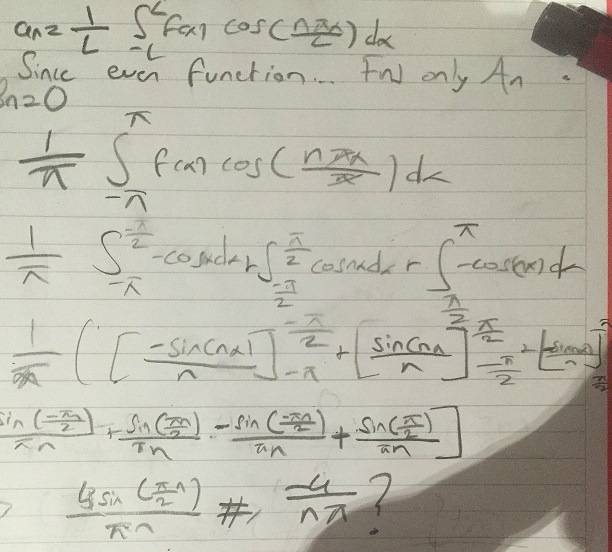 an = 1/L ∫_{-L}^{L} f(x) cos(nπx/L) dx
Since even function... Find only An .
Bn=0
1/π ∫_{-π}^{π} f(x) cos(nπx/π) dx
1/π ∫_{-π}^{-π/2} -cosnxdx + ∫_{-π/2}^{π/2} cosnxdx + ∫_{π/2}^{π} -cos(nx) dx
1/π ( [ -sin(nx)/n ]_{-π}^{-π/2} + [ sin(nx)/n ]_{-π/2}^{π/2} + [ -sin(nx)/n ]_{π/2}^{π}
sin(-πn/2)/πn + sin(πn/2)/πn - sin(-πn/2)/πn + sin(π/2)/πn ]
4sin(π/2 n)/πn #, 4/nπ ?